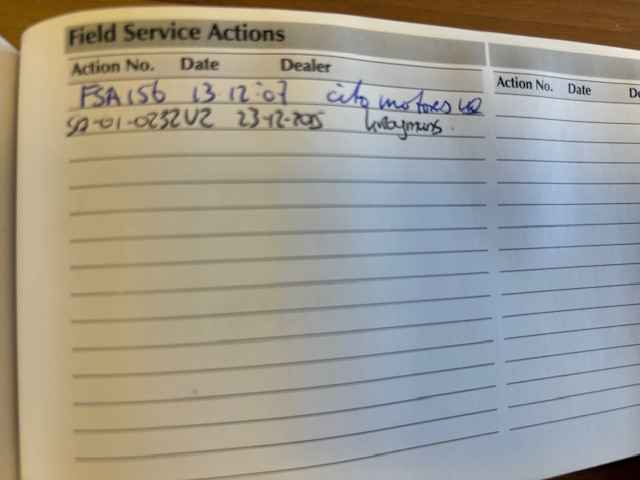 Field Service Actions
Action No. Date Dealer
FSA156 13 12:07 city motores
SA-01-0232V2 23-12-2015
Action No. Date